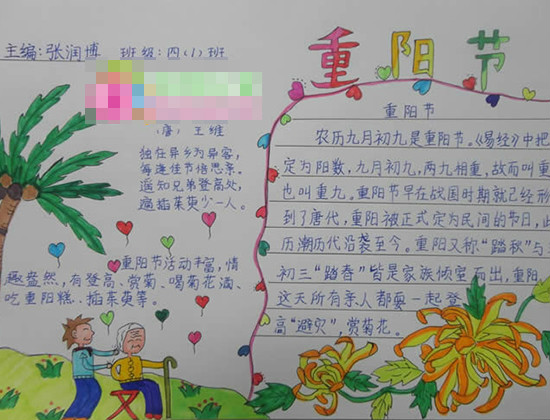 主编:张润博 班级:四(1)班
重阳节
(唐) 王维
独在异乡为异客,
每逢佳节倍思亲。
遥知兄弟登高处,
遍插茱萸少一人。
重阳节活动丰富,情
趣盎然,有登高、赏菊、喝菊花酒、
吃重阳糕、插茱萸等。
重阳节
农历九月初九是重阳节。《易经》中把
定为阳数,九月初九,两九相重,故而叫重
也叫重九。重阳节早在战国时期就已经形
到了唐代,重阳被正式定为民间的节日,此
历潮历代沿袭至今。重阳又称“踏秋”与
初三“踏春”皆是家族倾室而出,重阳
这天所有亲人都要一起登
高“避灾”,赏菊花。